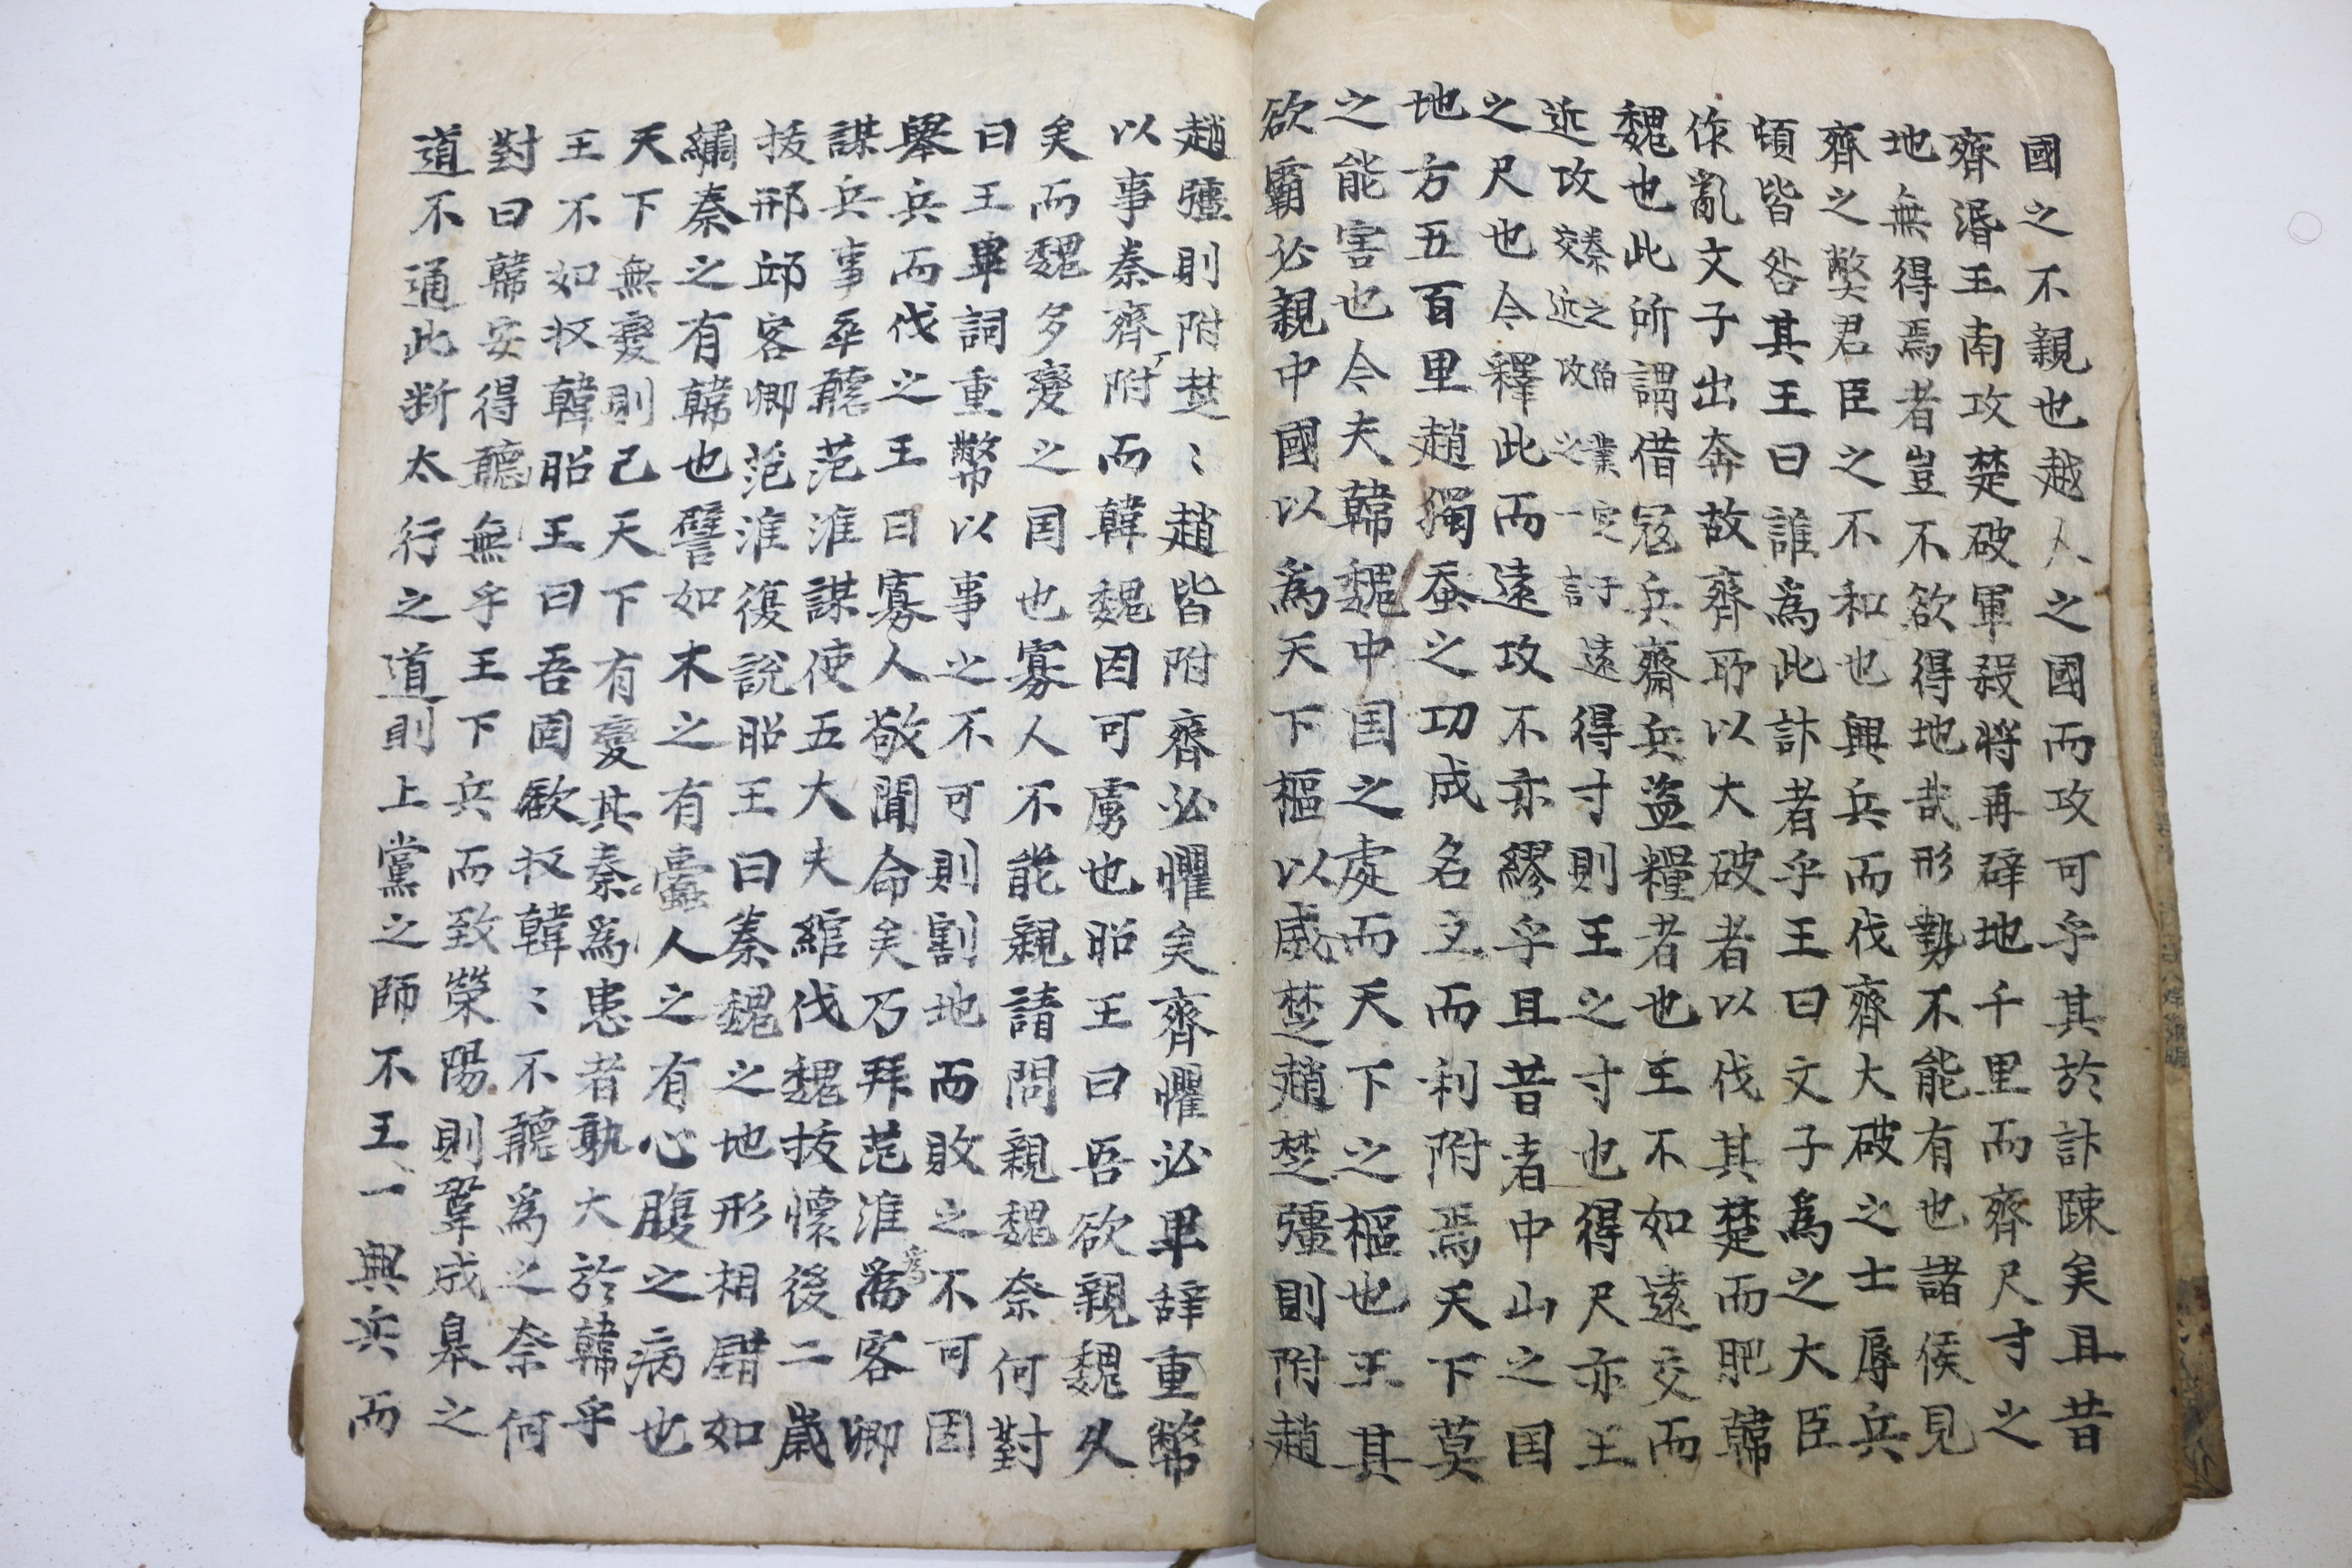 國之不親也越人之國而攻可乎其於計疎矣且昔
齊湣王南攻楚破軍殺將再辟地千里而齊尺寸之
地無得焉者豈不欲得地哉形勢不能有也諸侯見
齊之獘君臣之不和也興兵而伐齊大破之士辱兵
頓皆咎其王曰誰爲此計者乎王曰文子爲之大臣
作亂文子出奔故齊所以大破者以伐其楚而肥韓
魏也此所謂借寇兵齎兵盜糧者也王不如遠交而
近攻秦之伯業定于交近攻之一言遠得寸則王之寸也得尺亦王
之尺也今釋此而遠攻不亦繆乎且昔者中山之国
地方五百里趙獨吞之功成名立而利附焉天下莫
之能害也今夫韓魏中国之處而天下之樞也王其
欲霸必親中國以爲天下樞以威楚趙楚彊則附趙
趙彊則附楚〻趙皆附齊必懼矣齊懼必畢辞重幣
以事秦齊附而韓魏因可虜也昭王曰吾欲親魏久
矣而魏多變之国也寡人不能親請問親魏奈何對
曰王畢詞重幣以事之不可則割地而敗之不可固
舉兵而伐之王曰寡人敬聞命矣乃拜范淮爲客卿
謀兵事卒聽范淮謀使五大夫綰伐魏拔懷後二歲
拔邢邱客卿范淮復說昭王曰秦魏之地形相錯如
繡秦之有韓也譬如木之有蠹人之有心腹之病也
天下無變則已天下有變其秦爲患者孰大於韓乎
王不如収韓昭王曰吾固欲収韓〻不聽爲之奈何
對曰韓安得聽無乎王下兵而致榮陽則鞏成皋之
道不通此断太行之道則上黨之師不王一興兵而